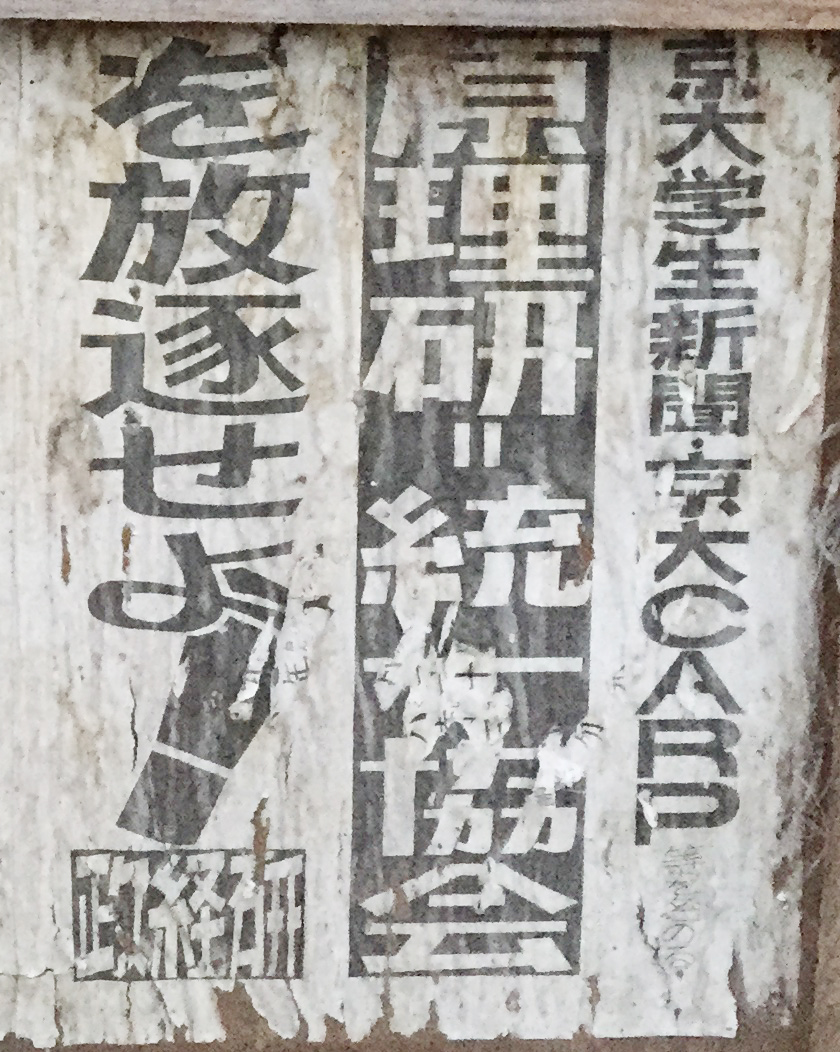 京大学生新聞・京大CARP
原理研=統一協会
を放逐せよ!
政経研